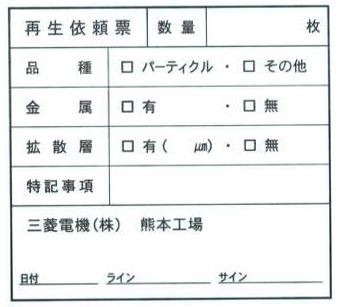 再生依頼票 数量 枚
品種 □ パーティクル ・ □ その他
金属 □ 有 ・ □ 無
拡散層 □ 有( μm)・ □ 無
特記事項
三菱電機(株) 熊本工場
日付 ライン サイン